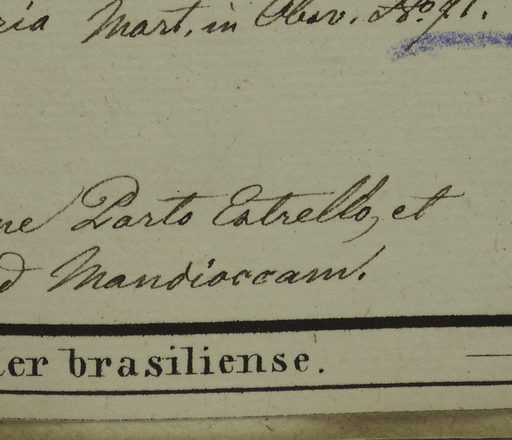 ria Mart. in Obsv. No. 71.
ne Porto Estrello, et
d Mandioccam.
ter brasiliense.